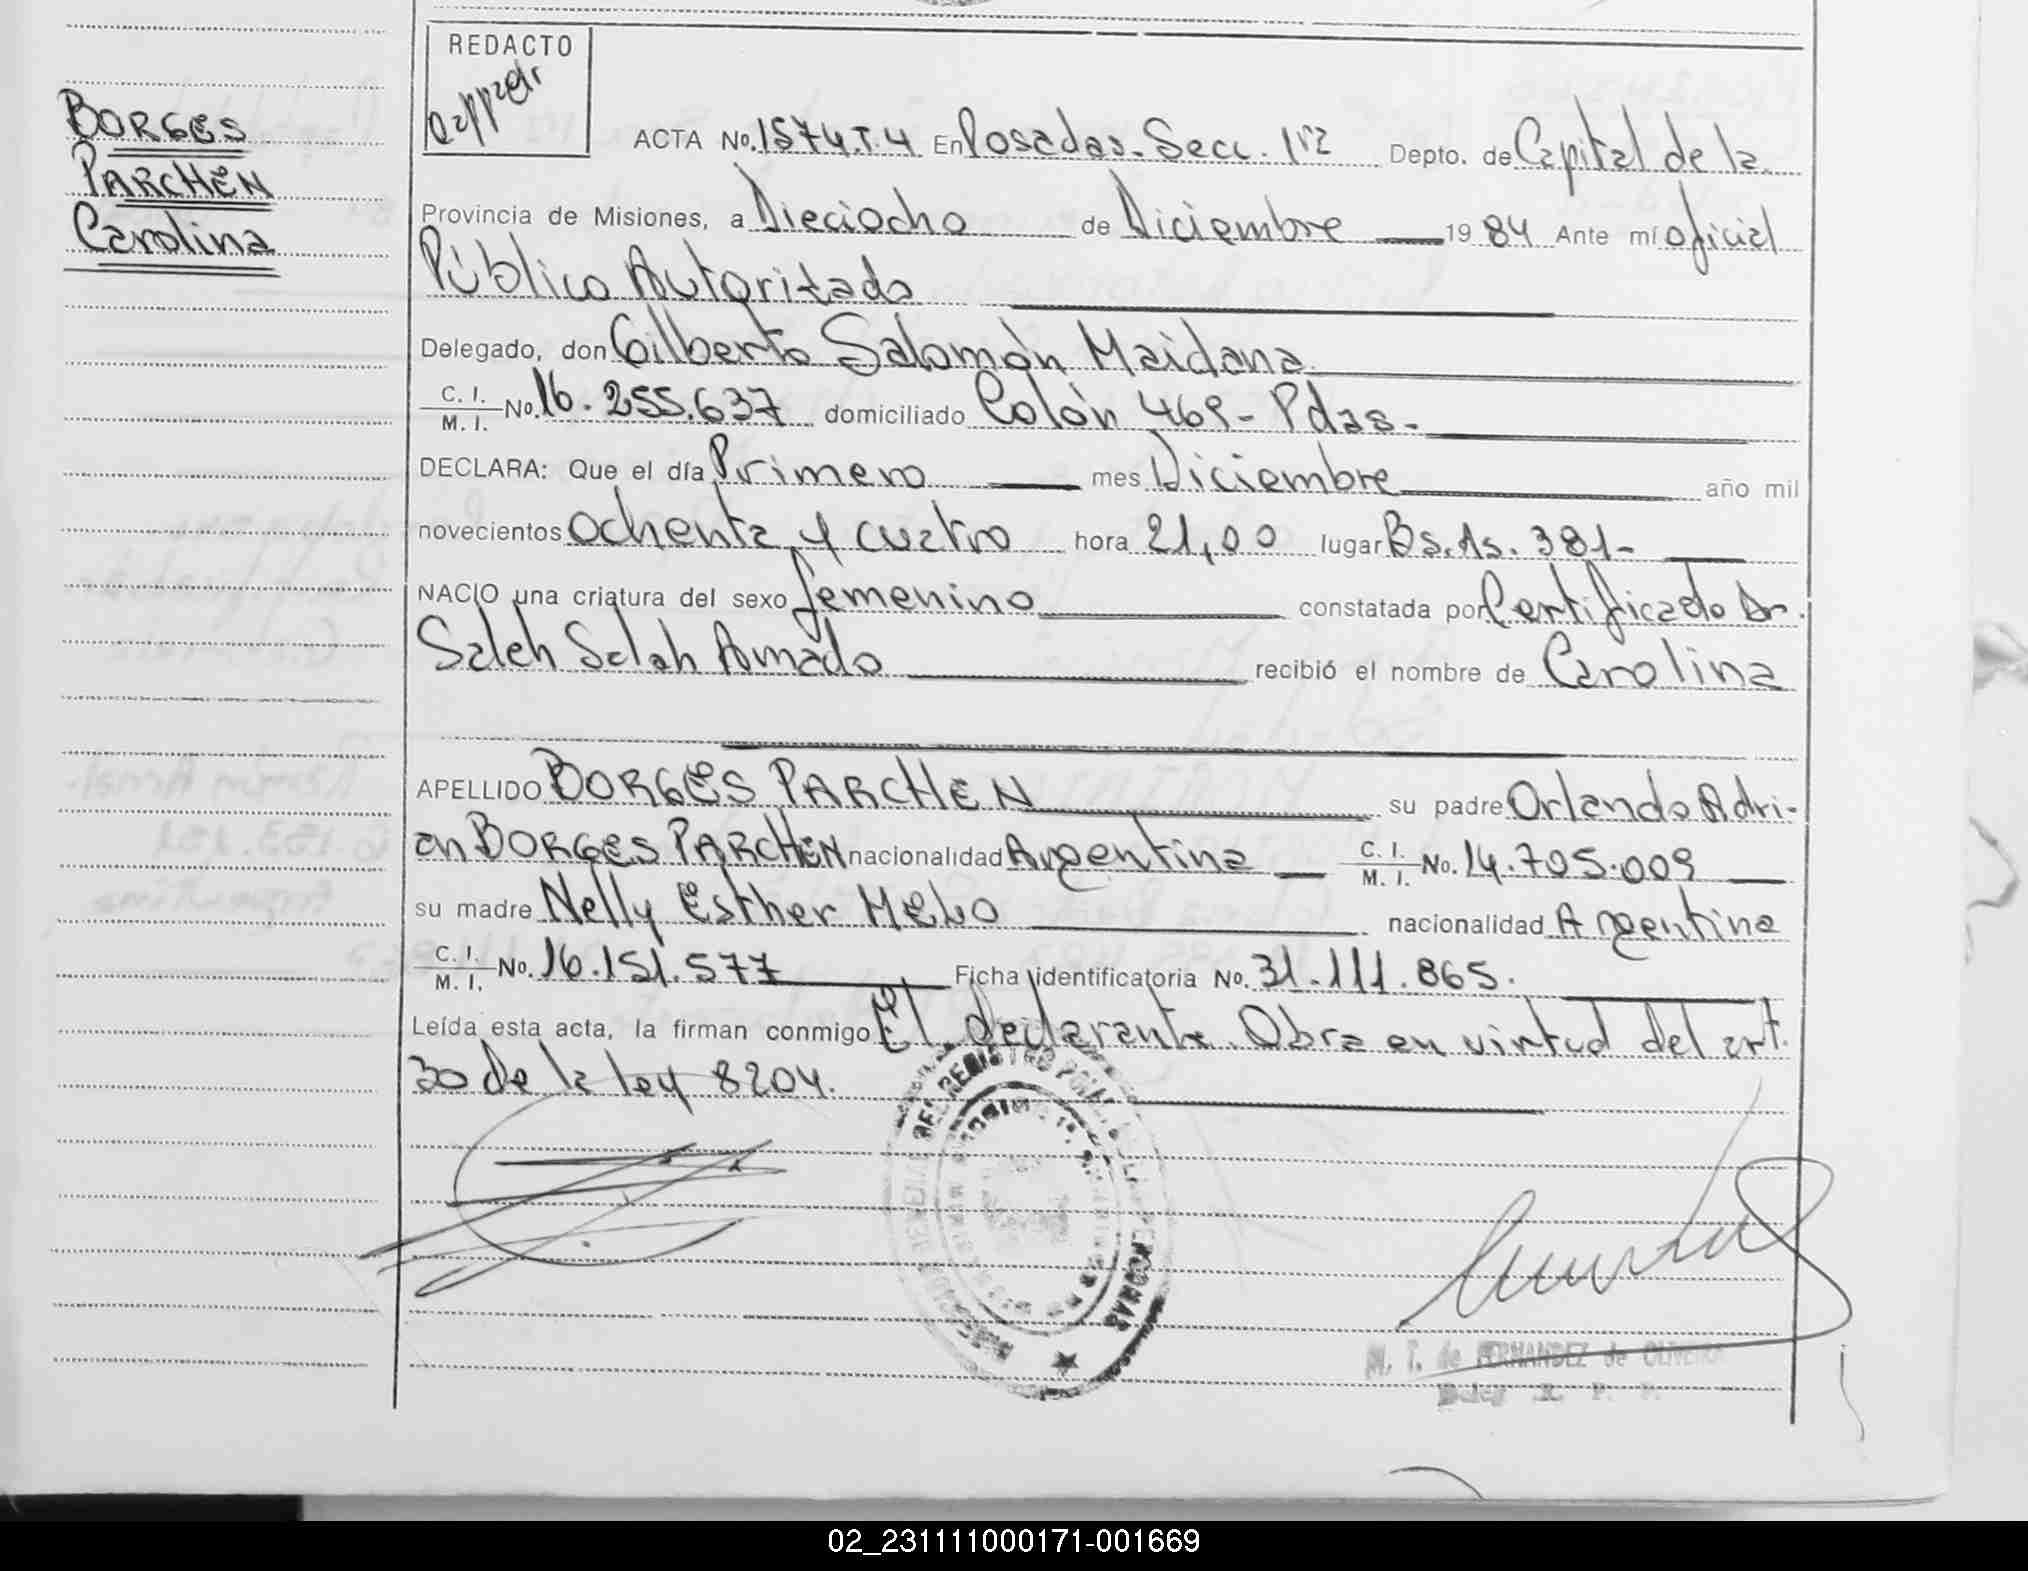 BORGES
PARCHEN
Carolina
REDACTO
ACTA No. 1574.T.4 En Posadas. Secc. 1ra Depto. de Capital de la
Provincia de Misiones, a Dieciocho de Diciembre 1984 Ante mí oficial
Público Autorizado
Delegado, don Gilberto Salomón Maidana
C. I. M. I. No. 16.255.637 domiciliado Colón 469- Pdas-
DECLARA: Que el día Primero mes Diciembre año mil
novecientos ochenta y cuatro hora 21,00 lugar Bs.As. 381-
NACIO una criatura del sexo femenino constatada por Certificado Dr.
Saleh Salah Amado recibió el nombre de Carolina
APELLIDO BORGES PARCHEN su padre Orlando Adri-
an BORGES PARCHEN nacionalidad Argentina C. I. M. I. No. 14.705.009
su madre Nelly Esther MELO nacionalidad Argentina
C. I. M. I. No. 16.151.577 Ficha identificatoria No. 31.111.865.
Leída esta acta, la firman conmigo El declarante. Obra en virtud del art.
30 de la ley 8204.
M. T. de FERNANDEZ de OLIVEIRA
02_231111000171-001669